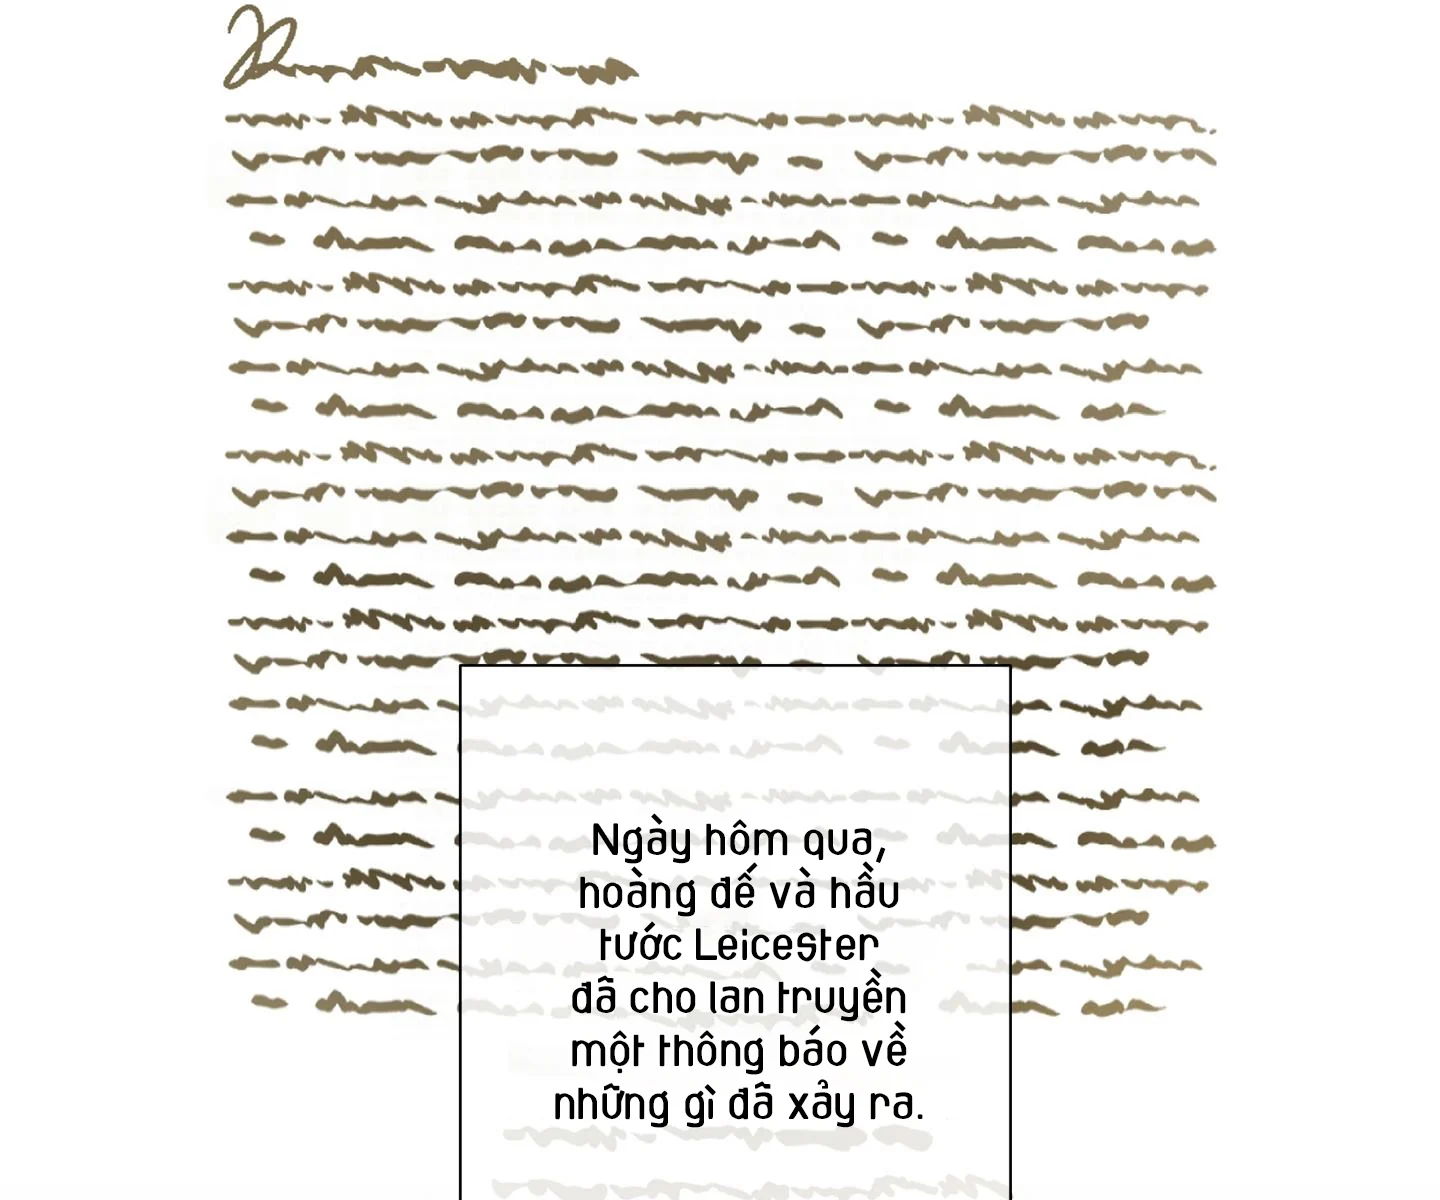 Ngày hôm qua,
hoàng đế và hầu
tước Leicester
đã cho lan truyền
một thông báo về
những gì đã xảy ra.